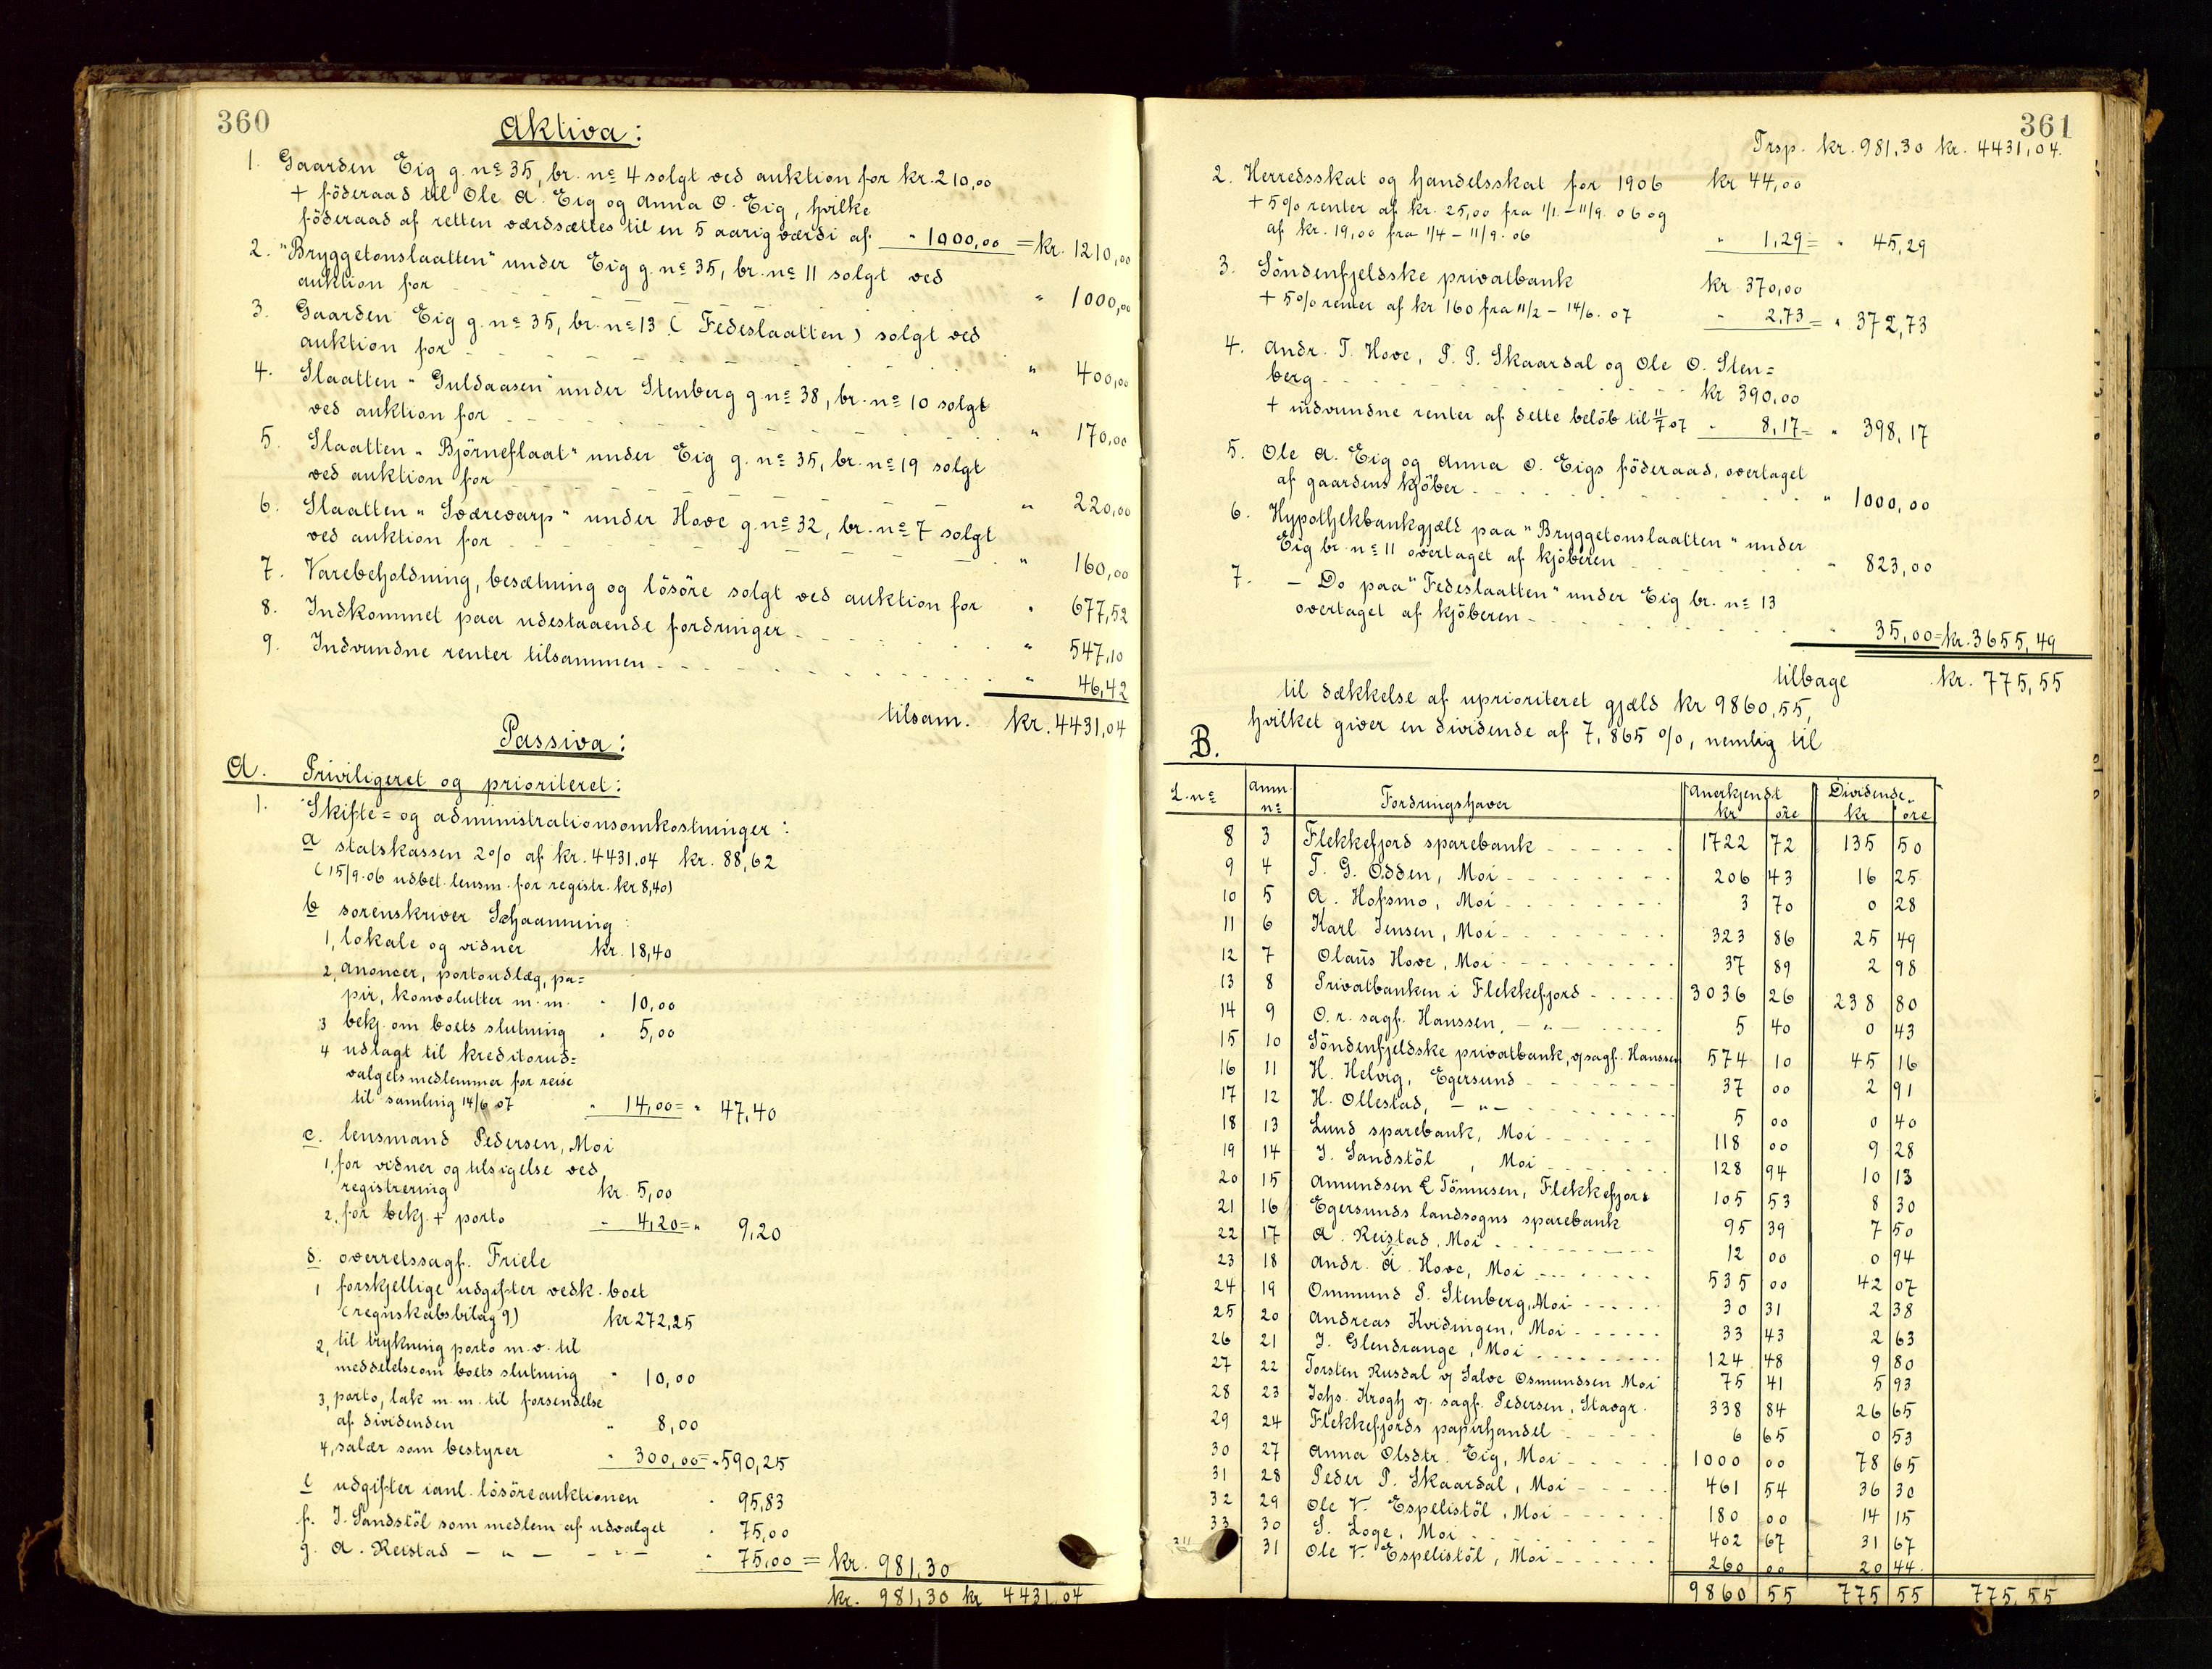 360
Aktiva:
1. Gaarden Eig g. nº 35, br. nº 4 solgt ved auktion for kr. 210,00
+ föderaad til Ole A. Eig og Anna O. Eig, hvilke
föderaad af retten værdsættes til en 5 aarig værdi af " 1000,00 = kr. 1210,00
2. "Bryggetonslaatten" under Eig g. nº 35, br. nº 11 solgt ved
auktion for " 1000,00
3. Gaarden Eig g. nº 35, br. nº 13 (Fedeslaatten) solgt ved
auktion for " 400,00
4. Slaatten "Guldaasen" under Stenberg g nº 38, br. nº 10 solgt
ved auktion for " 170,00
5. Slaatten "Björneflaat" under Eig g. nº 35, br. nº 19 solgt
ved auktion for " 220,00
6. Slaatten "Sværevarp" under Hove g. nº 32, br. nº 7 solgt
ved auktion for " 160,00
7. Varebeholdning, besætning og lösöre solgt ved auktion for " 677,52
8. Indkommet paa udestaaende fordringer " 547,10
9. Indvundne renter tilsammen " 46,42
tilsam. kr. 4431,04
Passiva:
A. Priviligeret og prioriteret:
1. Skifte= og administrationsomkostninger:
a statskassen 2% af kr. 4431.04 kr. 88,62
(15/9.06 udbet. lensm. for registr. kr 8,40)
b sorenskriver Schaanning:
1, lokale og vidner kr. 18,40
2, anoncer, portoudlæg, pa=
pir, konvolutter m. m. " 10,00
3 bekj. om boets slutning " 5,00
4 udlagt til kreditorud=
valgetsmedlemmer for reise
til samling 14/6 07 " 14,00 = " 47,40
c. lensmand Pedersen, Moi
1, for vidner og tilsigelse ved
registrering kr. 5,00
2, for bekj. + porto " 4,20 = " 9,20
d. overretssagf. Friele
1 forskjellige udgifter vedk. boet
(regnskabsbilag 9) kr 272,25
2, til trykning porto m. v. til
meddelelse om boets slutning " 10,00
3, porto, lak m. m. til forsendelse
af dividenden " 8,00
4, salær som bestyrer " 300,00 = " 590,25
e udgifter ianl. lösöreauktionen " 95,83
f. J. Sandstöl som medlem af udvalget " 75,00
g. A. Reistad — " — — " — " 75,00 = kr. 981,30
kr. 981,30 kr 4431,04
361
Trsp. kr. 981,30 kr. 4431,04.
2. Herredsskat og handelsskat for 1906 kr 44,00
+ 5% renter af kr. 25,00 fra 1/1 – 11/9. 06 og
af kr. 19,00 fra 1/4 – 11/9. 06 " 1,29 = " 45,29
3. Söndenfjeldske privatbank kr. 370,00
+ 5% renter af kr 160 fra 11/2 – 14/6. 07 " 2,73 = " 372,73
4. Andr. T. Hove, P. P. Skaardal og Ole O. Sten=
berg kr 390,00
+ indvundne renter af dette belöb til 11/7 07 " 8,17 = " 398,17
5. Ole A. Eig og Anna O. Eigs föderaad, overtaget
af gaardens kjöber " 1000,00
6. Hypothekbankgjæld paa "Bryggetonslaatten" under
Eig br. nº 11 overtaget af kjöberen " 823,00
7. – Do paa "Fedeslaatten" under Eig br. nº 13
overtaget af kjöberen " 35,00 = kr. 3655,49
tilbage kr. 775,55
til dækkelse af uprioriteret gjæld kr 9860,55,
hvilket giver en dividende af 7,865 %, nemlig til
B.
L. nº Anm. nº Fordringshaver Anerkjendt kr öre Dividende kr öre
8 3 Flekkefjord sparebank 1722 72 135 50
9 4 T. G. Odden, Moi 206 43 16 25
10 5 A. Hofsmo, Moi 3 70 0 28
11 6 Karl Jensen, Moi 323 86 25 49
12 7 Olaus Hove, Moi 37 89 2 98
13 8 Privatbanken i Flekkefjord 3036 26 238 80
14 9 O. r. sagf. Hanssen, — " — 5 40 0 43
15 10 Söndenfjeldske privatbank, v/sagf. Hanssen 574 10 45 16
16 11 H. Helvig, Egersund 37 00 2 91
17 12 H. Ollestad, — " — 5 00 0 40
18 13 Lund sparebank, Moi 118 00 9 28
19 14 J. Sandstöl, Moi 128 94 10 13
20 15 Amundsen & Tönnesen, Flekkefjord 105 53 8 30
21 16 Egersunds landsogns sparebank 95 39 7 50
22 17 A. Reistad, Moi 12 00 0 94
23 18 Andr. A. Hove, Moi 535 00 42 07
24 19 Ommund P. Stenberg, Moi 30 31 2 38
25 20 Andreas Kvidingen, Moi 33 43 2 63
26 21 J. Glendrange, Moi 124 48 9 80
27 22 Torsten Rusdal v/ Salve Osmundssen Moi 75 41 5 93
28 23 Johs. Krogh v/. sagf. Pedersen, Stavgr. 338 84 26 65
29 24 Flekkefjords papirhandel 6 65 0 53
30 27 Anna Olsdtr. Eig, Moi 1000 00 78 65
31 28 Peder P. Skaardal, Moi 461 54 36 30
32 29 Ole V. Espelistöl, Moi 180 00 14 15
33 30 S. Loge, Moi 402 67 31 67
31 Ole V. Espelistöl, Moi 260 00 20 44
9860 55 775 55 775,55